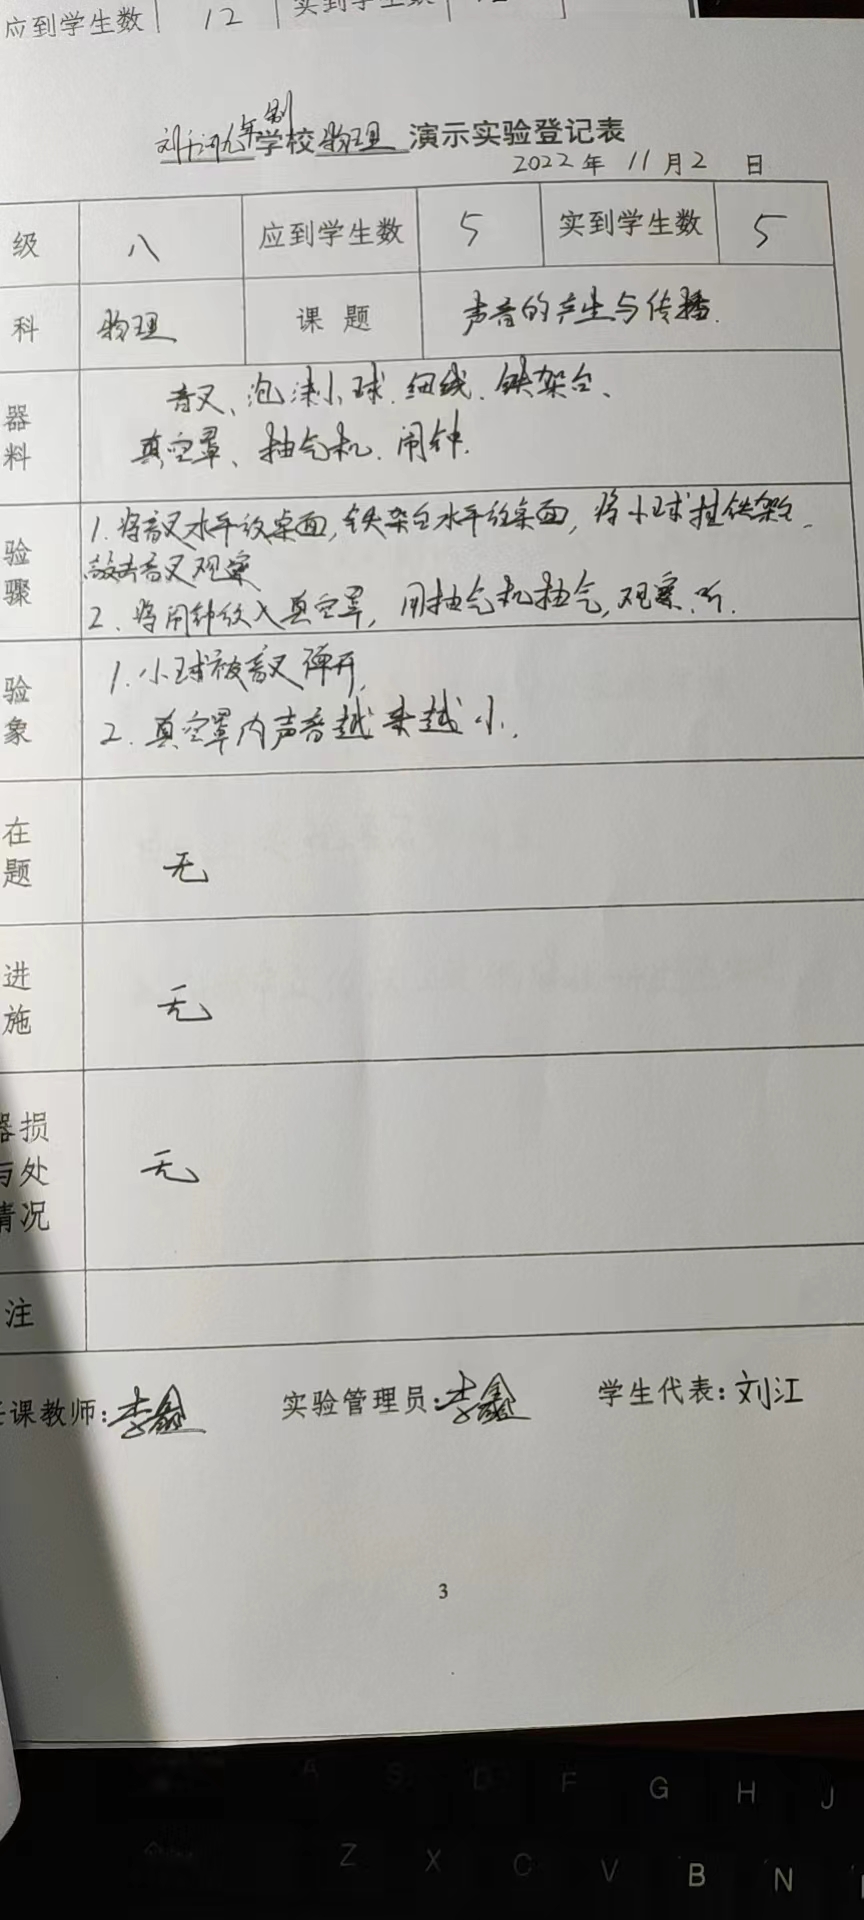 应到学生数 12 实到学生数
刘 河九年制学校物理 演示实验登记表
2022年 11月2 日
级 八 应到学生数 5 实到学生数 5
科 物理 课题 声音的产生与传播.
器 音叉、泡沫小球.细线.铁架台、
料 真空罩、抽气机.闹钟.
1.将音叉水平放桌面,铁架台水平放桌面,将小球挂铁架台.
验 敲击音叉观察
骤 2.将闹钟放入真空罩,用抽气机抽气,观察.听.
验 1.小球被音叉弹开.
象 2.真空罩内声音越来越小.
在
题 无
进
施 无
器损
与处 无
情况
注
任课教师:李鑫 实验管理员:李鑫 学生代表:刘江
3
A S D F G H J
Z X C V B N